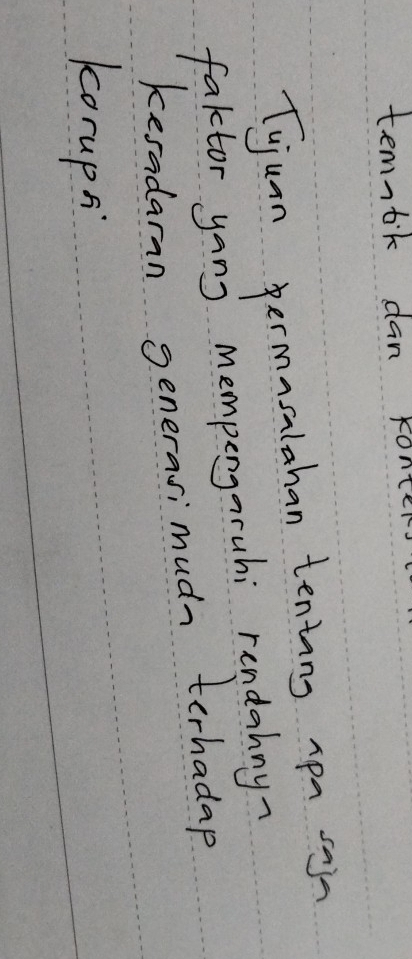 tematik dan
Tujuan permasalahan tentang apa saja
faktor yang mempengaruhi rendahnya
kesadaran generasi muda terhadap
korupsi